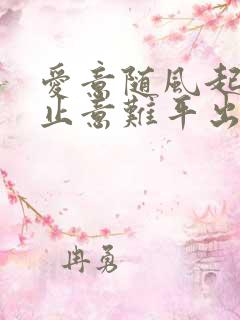 愛意随風起
止意難平出
冉勇